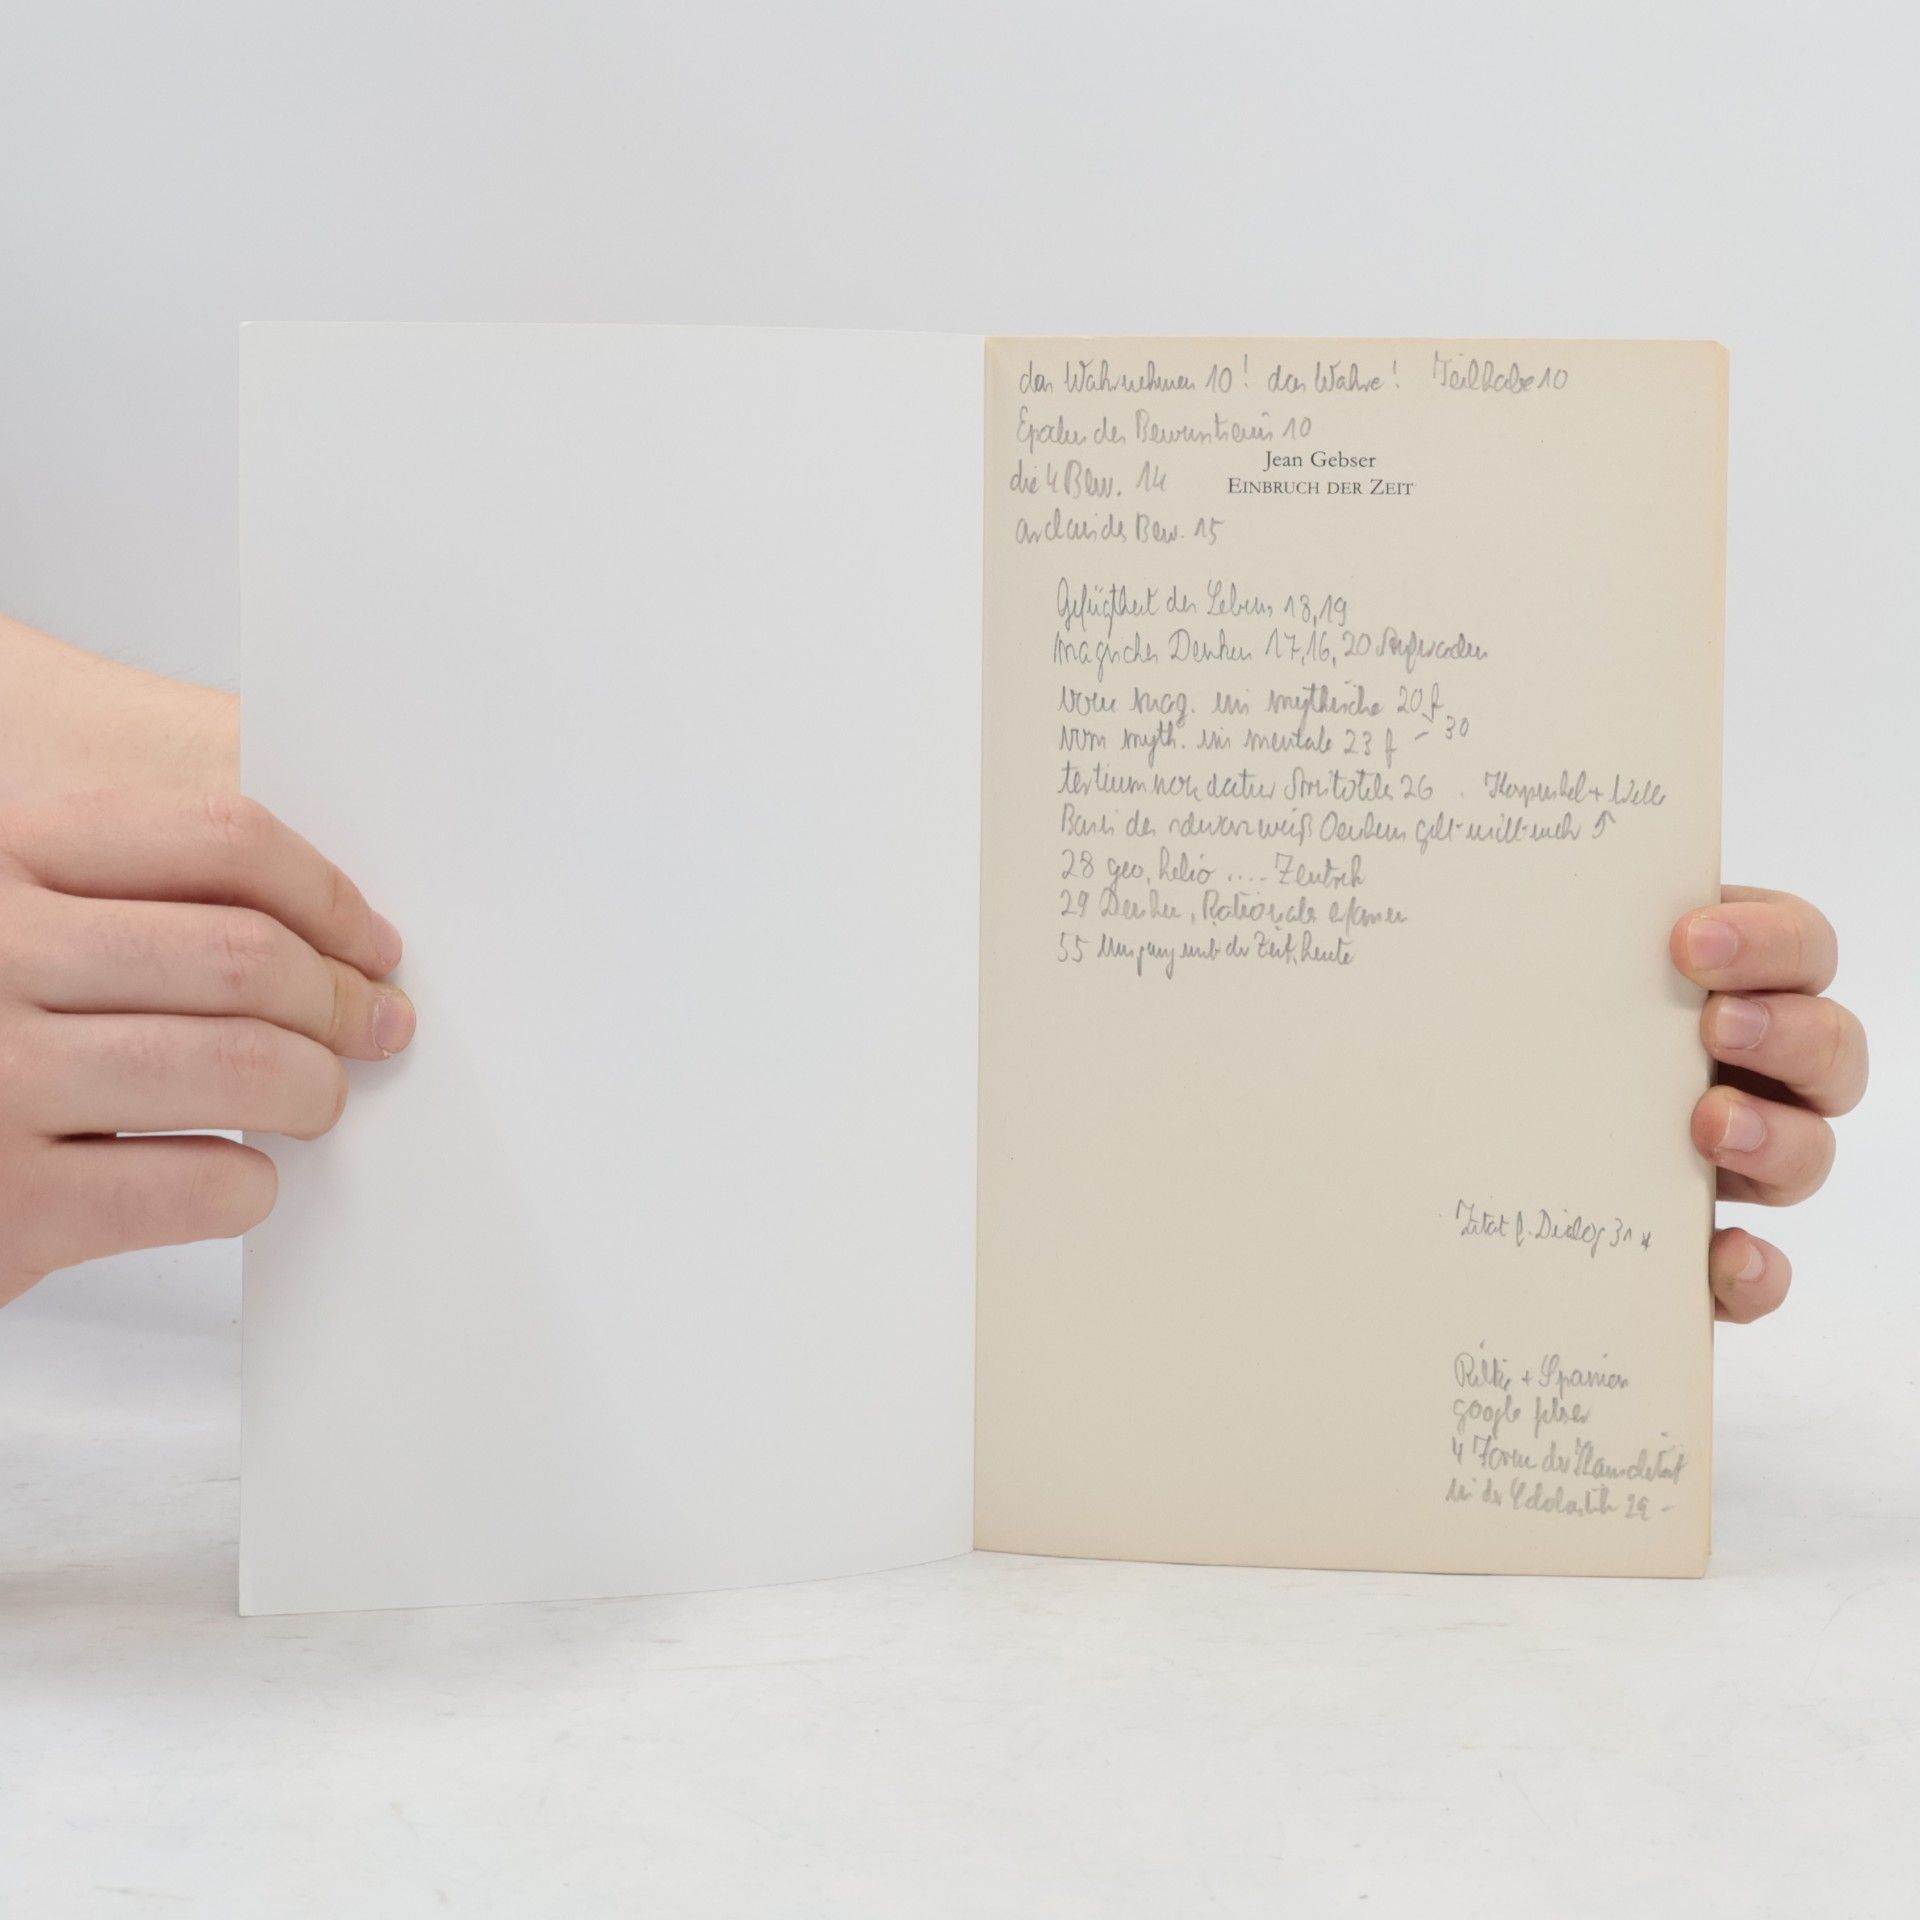 das Wahrnehmen 10! das Wahre! Teilhabe 10
Epochen des Bewusstseins 10
Jean Gebser
die 4 Bew. 14
EINBRUCH DER ZEIT
archaisches Bew. 15
Gefügtheit des Lebens 18,19
magisches Denken 17,16,20
vom mag. ins mythische 20 f
vom myth. ins mentale 23 f - 30
tertium non datur Aristoteles 26 . Korpuskel + Welle
Basis des schwarzweiß Denkens
28 geo, helio .... Zentrik
29 Denken, Rationales
55 Umgang mit der Zeit, heute
Zitat f. Dialog 31 *
Rilke + Spanien
google
4 Form der
in der Scholastik 29 -